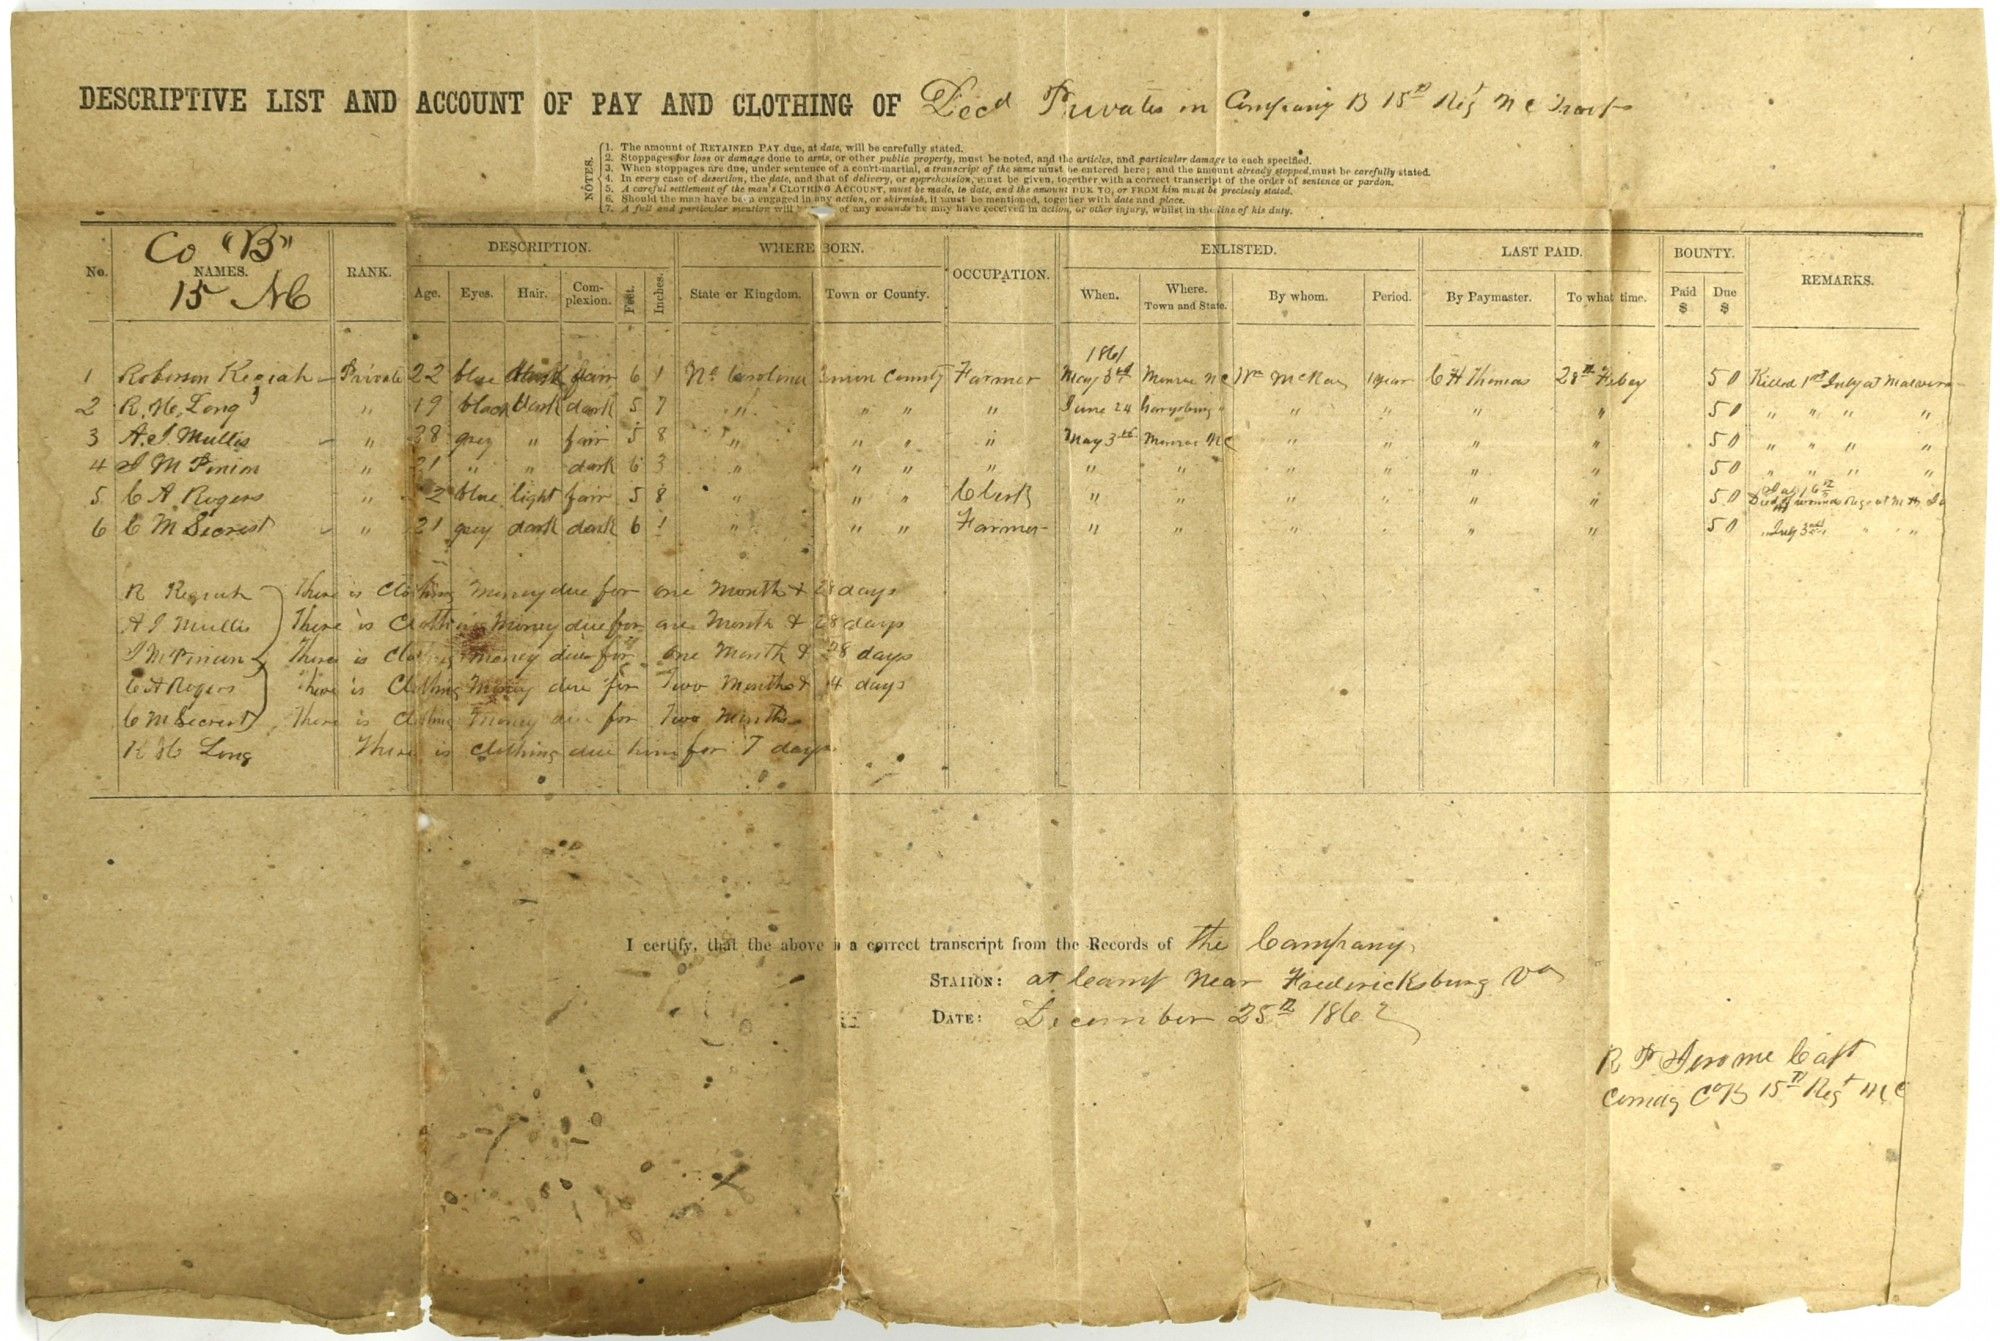 DESCRIPTIVE LIST AND ACCOUNT OF PAY AND CLOTHING OF Decd Privates in Company B 15th Regt N C Troops
NOTES.
1. The amount of RETAINED PAY due, at date, will be carefully stated.
2. Stoppages for loss or damage done to arms, or other public property, must be noted, and the articles, and particular damage to each specified.
3. When stoppages are due, under sentence of a court-martial, a transcript of the same must be entered here; and the amount already stopped, must be carefully stated.
4. In every case of desertion, the date, and that of delivery, or apprehension, must be given, together with a correct transcript of the order of sentence or pardon.
5. A careful settlement of the man's CLOTHING ACCOUNT, must be made, to date, and the amount DUE TO, or FROM him must be precisely stated.
6. Should the man have been engaged in any action, or skirmish, it must be mentioned, together with date and place.
7. A full and particular mention will of any wounds he may have received in action, or other injury, whilst in the line of his duty.
Co "B"
15 NC
No. NAMES. RANK. DESCRIPTION. WHERE BORN. OCCUPATION. ENLISTED. LAST PAID. BOUNTY. REMARKS.
Age. Eyes. Hair. Complexion. Feet. Inches. State or Kingdom. Town or County. When. Where. Town and State. By whom. Period. By Paymaster. To what time. Paid $ Due $
1861
1 Roberson Keziah Private 22 blue dark fair 6 1 No Carolina Union County Farmer May 3rd Monroe NC Wm McKay 1 year C H Thomas 28th Feby 50 Killed 1st July at Malvern
2 R. H. Long " 19 black dark dark 5 7 " " " " June 24 Garrysburg " " " " " 50 " " " "
3 A. J. Mullis " 38 grey " fair 5 8 " " " " May 3rd Monroe NC " " " " 50 " " " "
4 J M Pinion " 21 " " dark 6 3 " " " " " " " " " " 50 " " " "
5 C A Rogers " 2 blue light fair 5 8 " " " Clerk " " " " " " 50 Died of wounds
6 C M Secrest " 21 grey dark dark 6 1 " " " Farmer " " " " " " 50 " July 3rd " "
R Keziah There is Clothing Money due for one Month & 28 days
A J Mullis There is Clothing Money due for one Month & 28 days
J M Pinion There is Clothing money due for one Month & 28 days
C A Rogers There is Clothing Money due for Two Months & 4 days
C M Secrest There is Clothing Money due for Two Months
R H Long There is clothing due him for 7 days
I certify, that the above is a correct transcript from the Records of the Company
STATION: at Camp Near Fredericksburg Va
DATE: December 25th 1862
R P Jerome Capt
Comdg Co B 15th Regt N C